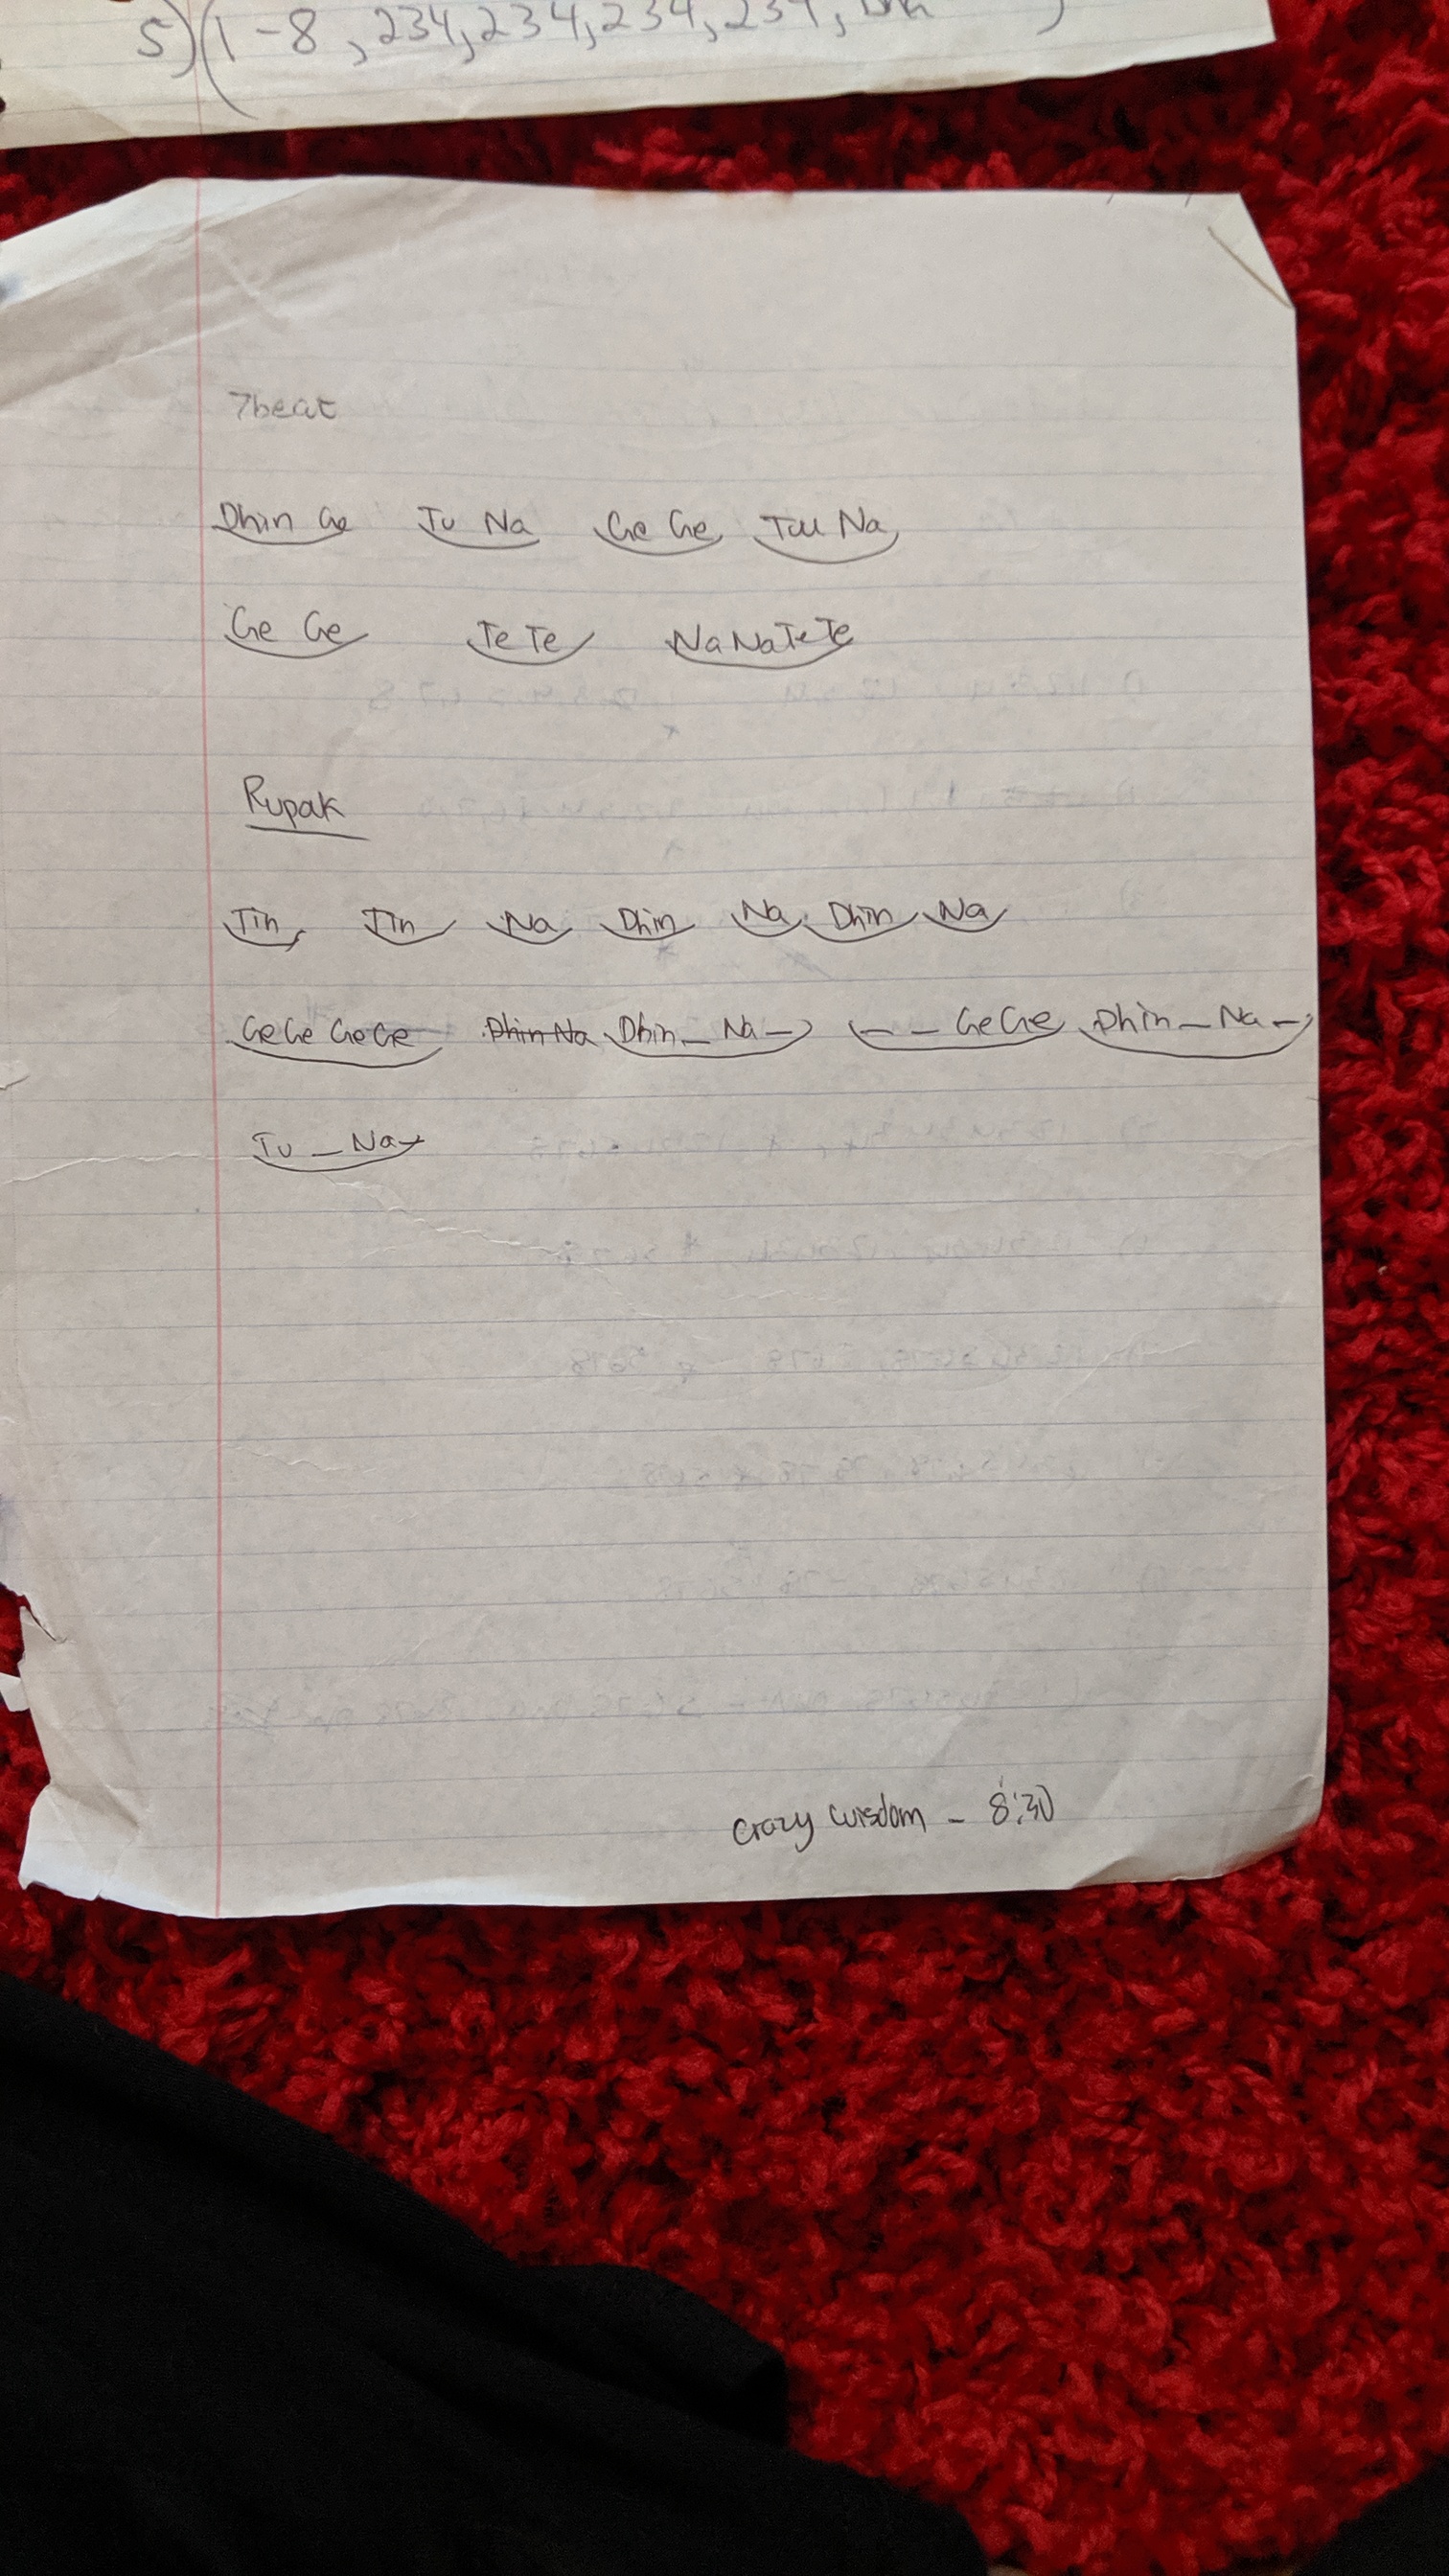 5) (1-8, 234, 234, 234, 234,
7beat
Dhin Ge Tu Na Ge Ge Tuu Na
Ge Ge Te Te Na Na Te Te
Rupak
Tin Tin Na Dhin Na Dhin Na
GeGe GeGe Dhin Na Dhin _ Na - - - GeGe Dhin _ Na -
Tu _ Na -
Crazy wisdom - 8:30